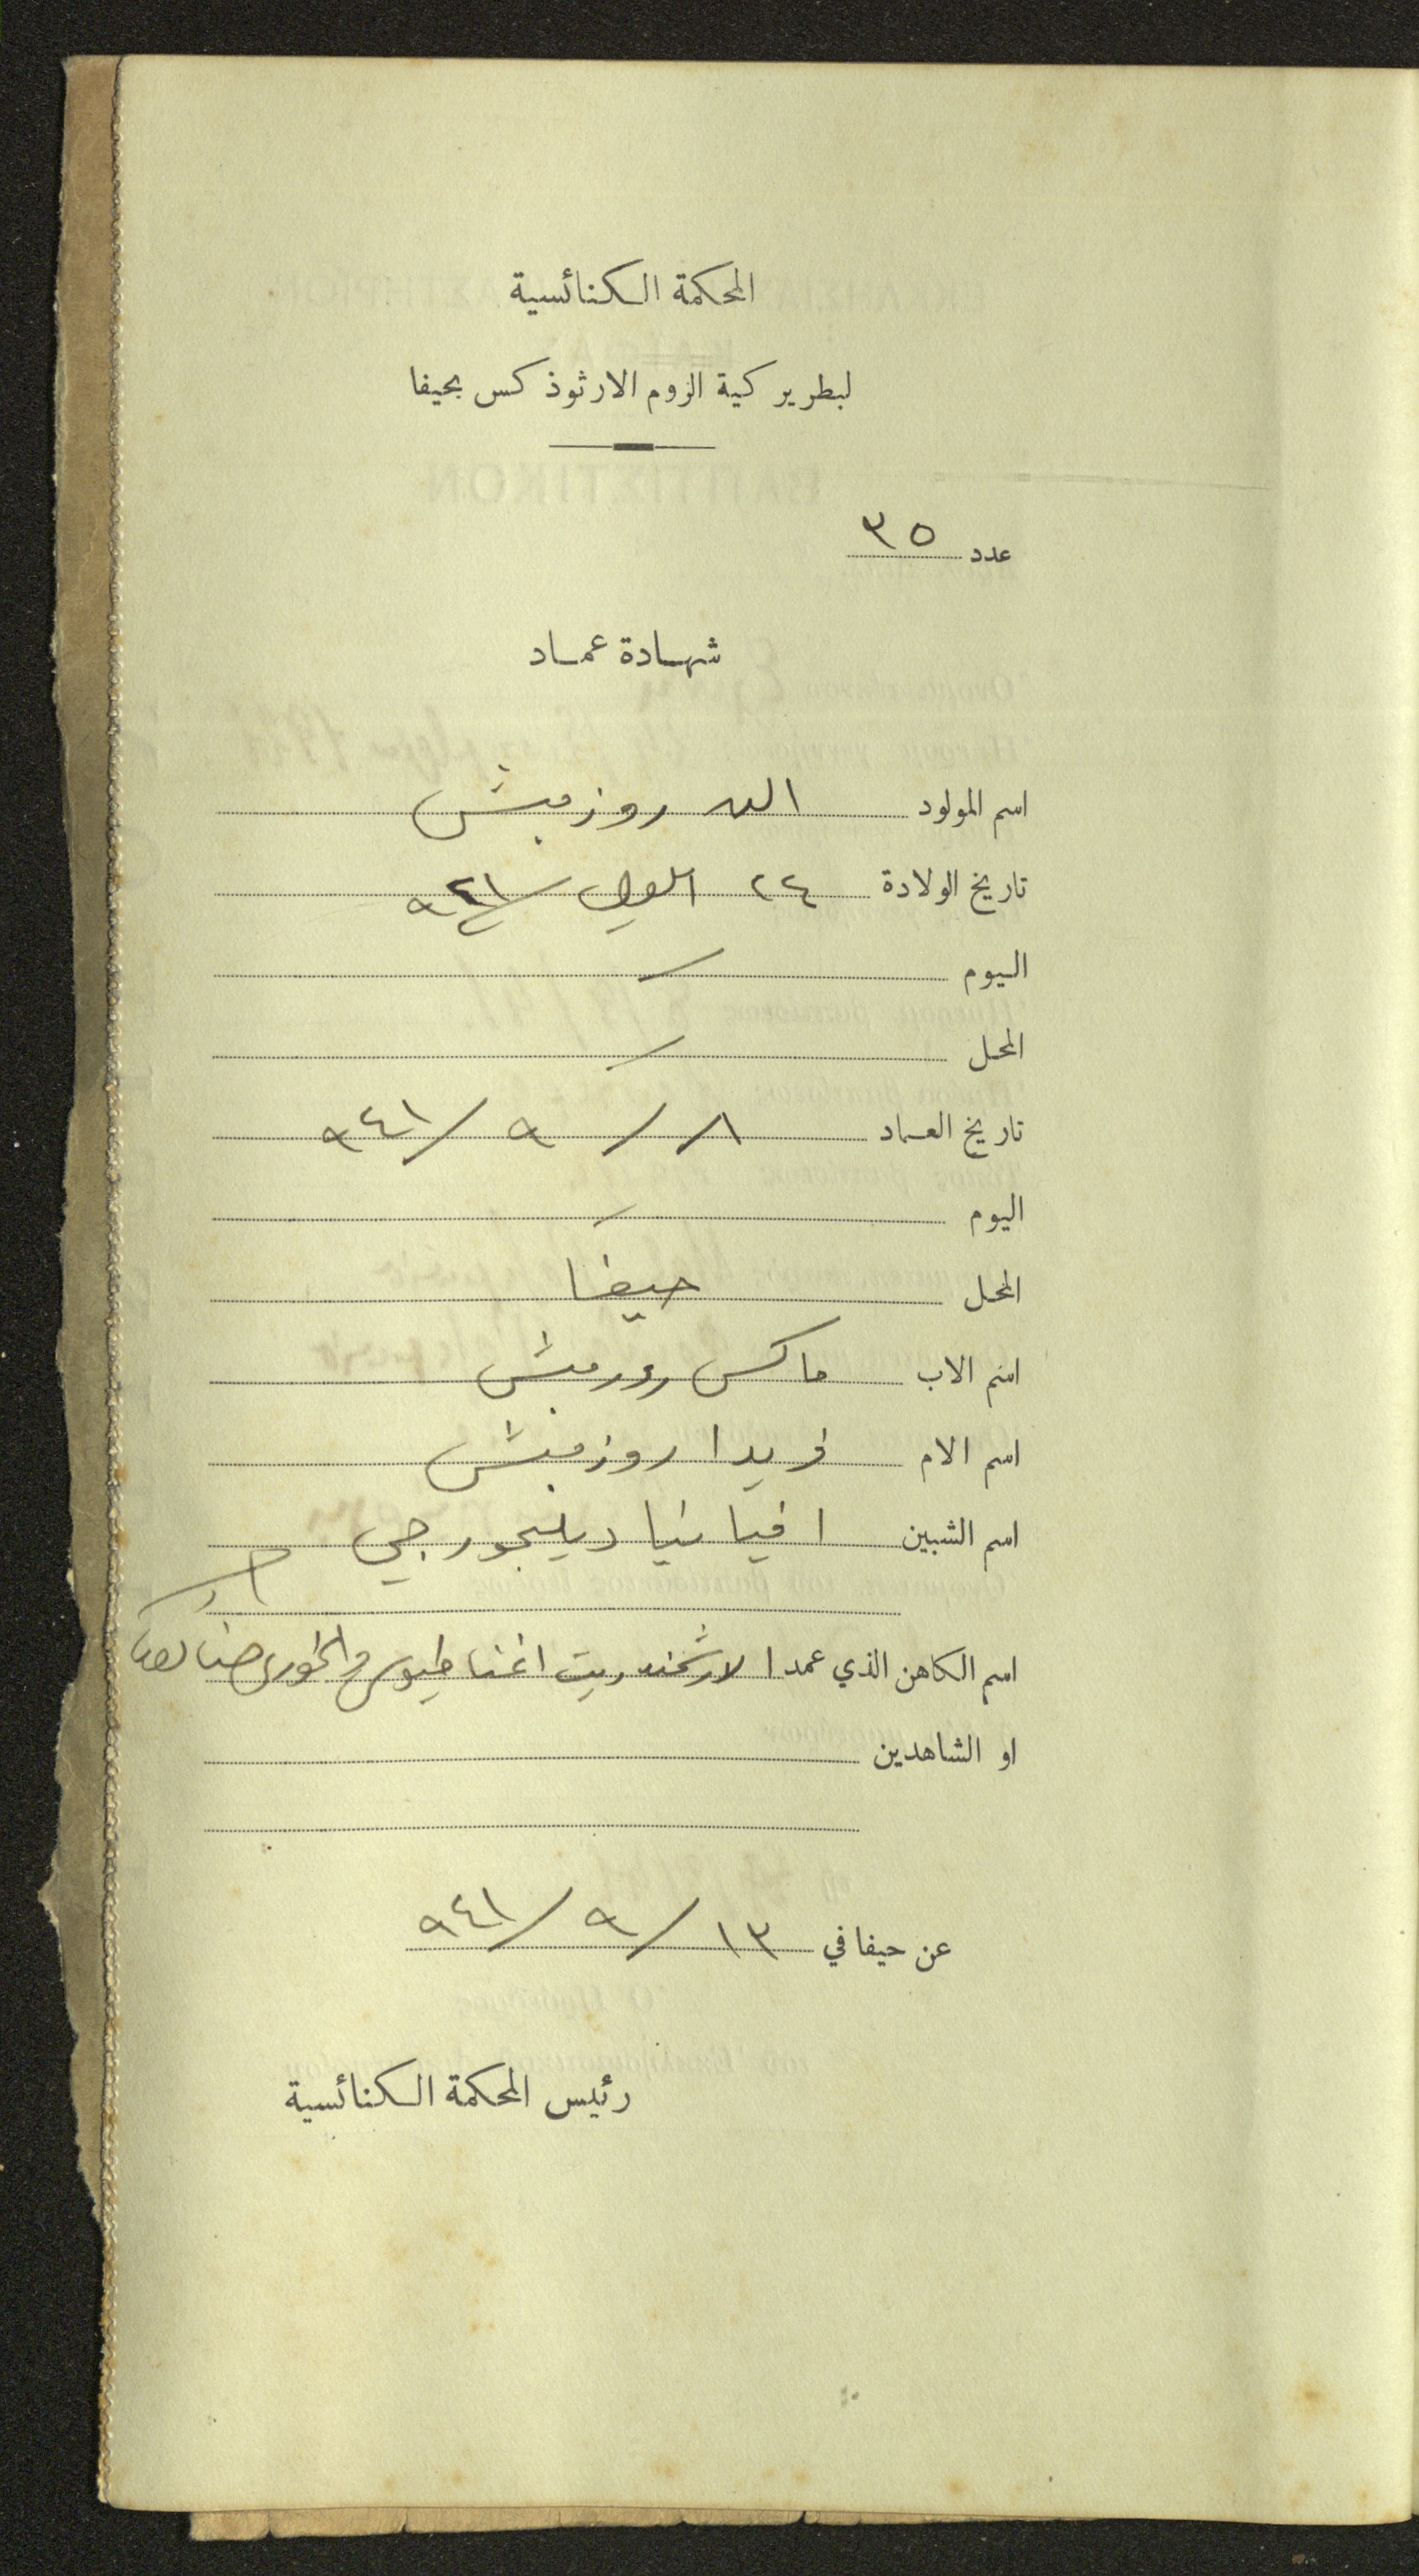 المحكمة الكنائسية
لبطريركية الروم الارثوذكس بحيفا
عدد ٣٥
شهادة عماد
اسم المولود روزمبش
تاريخ الولادة ٢٤ ايلول /٩٤١
اليوم /
المحل /
تاريخ العماد ٨ / ٩ /٩٤١
اليوم /
المحل حيفا
اسم الاب ماكس روزمبش
اسم الام فريدا روزمبش
اسم الشبين
اسم الكاهن الذي عمد الارشمندريت اغناطيوس والخوري حنا
او الشاهدين
عن حيفا في ١٣ / ٩ /٩٤١
رئيس المحكمة الكنائسية